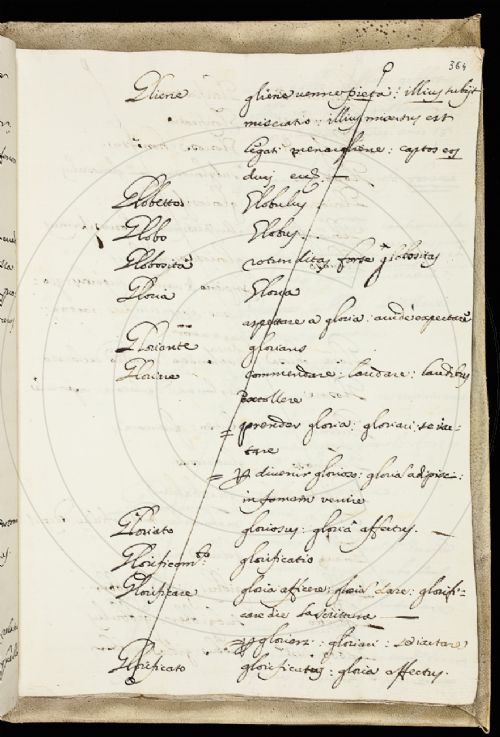 364
Gliene gliene venne pietà: illius subijt
miseratio: illius misertus est
legati menargliene: captos eos
Globetto Globulus
Globo Globus
Globosità rotunditas forse globositas
Gloria Gloria
aspettare a gloria: avidè expectare
Gloriante glorians
commendare: laudare: laudibus
extollere
prender gloria: gloriari: se iac-
tare
divenir glorioso: gloriã adipisc:
in famam venire
Gloriato gloriosus: gloriâ affectus. —
Glorificam.to glorificatio
Glorificare gloria afficere: gloriã dare: glorifi-
care die la scrittura —
gloriarz: gloriari: se iactare
Glorificato glorificatus: gloria affectus.